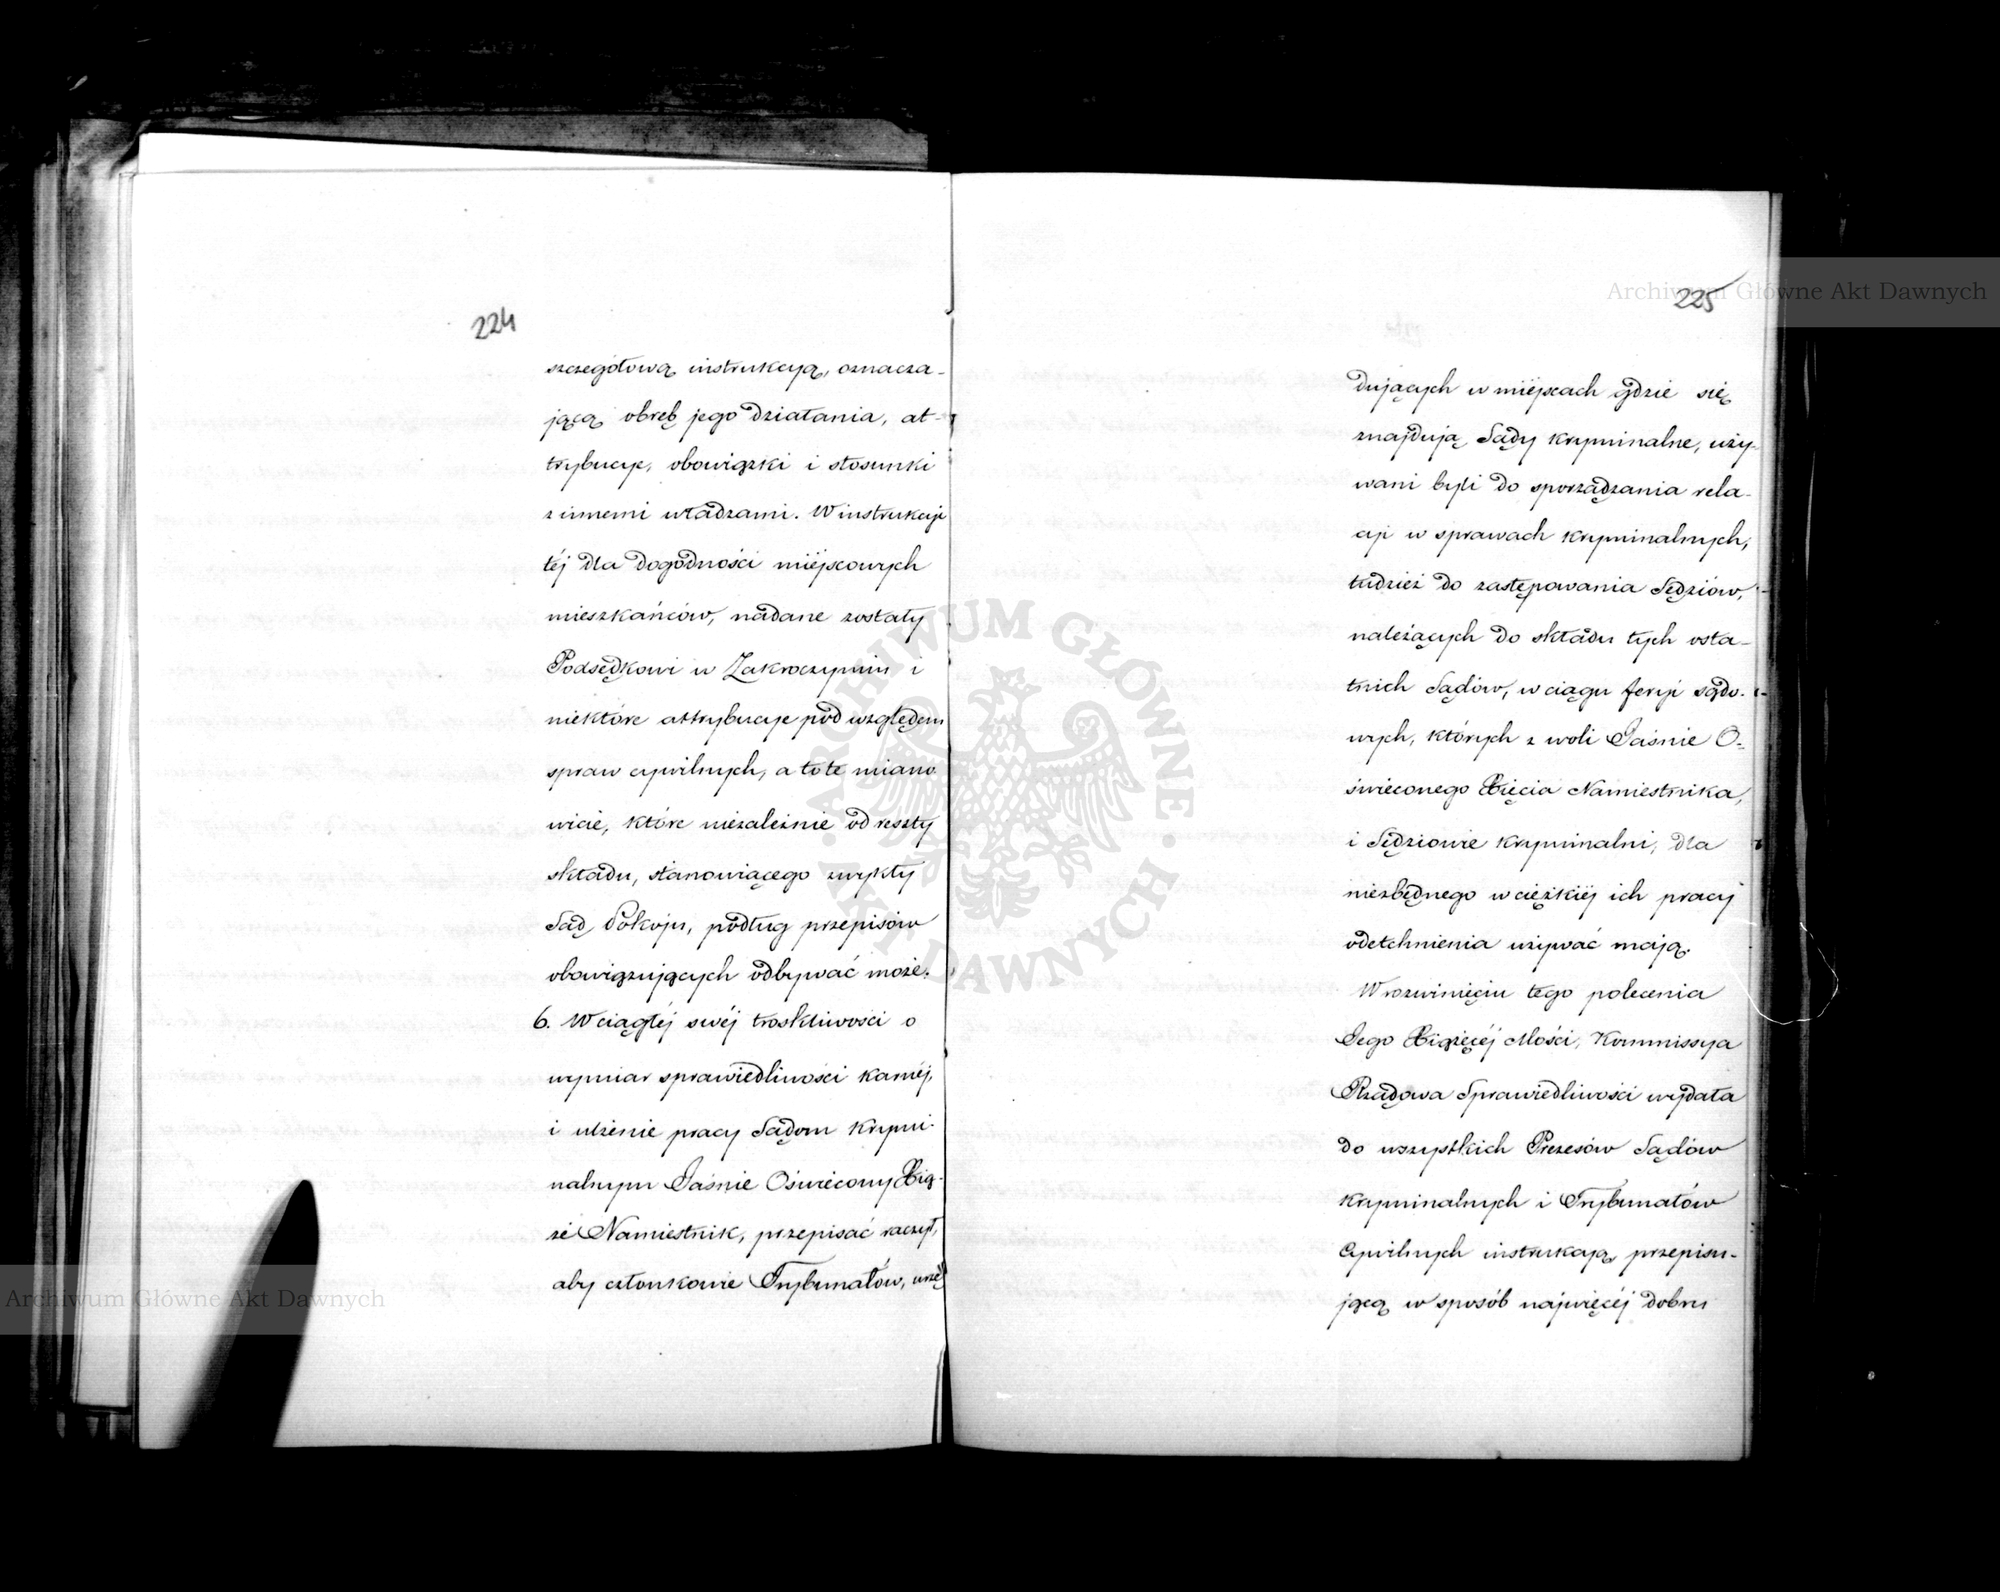 224
szczegółową instrukcyą, oznacza-
jącą obręb jego działania, at-
trybucye, obowiązki i stosunki
z innemi władzami. W instrukcyi
téj dla dogodności miéjscowych
mieszkańców, nadane zostały
Podsędkowi w Zakroczymiu i
niektóre attrybucye pod względem
spraw cywilnych, a to te miano
wicie, które niezależnie od reszty
składu, stanowiącego zwykły
Sąd Pokoju, podług przepisów
obowiązujących odbywać może.
6. W ciągłéj swéj troskliwości o
wymiar sprawiedliwości karnéj,
i ulżenie pracy Sądom Krymi-
nalnym Jaśnie Oświecony Xią-
że Namiestnik, przepisać raczył,
aby członkowie Trybunałów, urzę
225
dujących w miéjscach gdzie się
znajdują Sądy kryminalne, uży-
wani byli do sporządzania rela-
cyi w sprawach kryminalnych,
tudzież do zastępowania Sędziów,
należących do składu tych osta-
tnich Sądów, w ciągu feryi sądo-
wych, których z woli Jaśnie O-
świeconego Xięcia Namiestnika,
i Sędziowie kryminalni, dla
niezbędnego w ciężkiéj ich pracy
odetchnienia używać mają.
W rozwinięciu tego polecenia
Jego Xiążęcéj Mości, Kommissya
Rządowa Sprawiedliwości wydała
do wszystkich Prezesów Sądów
kryminalnych i Trybunałów
Cywilnych instrukcyą, przepisu-
jącą w sposób najwięcéj dobru
Archiwum Główne Akt Dawnych
Archiwum Główne Akt Dawnych
ARCHIWUM GŁÓWNE AKT DAWNYCH